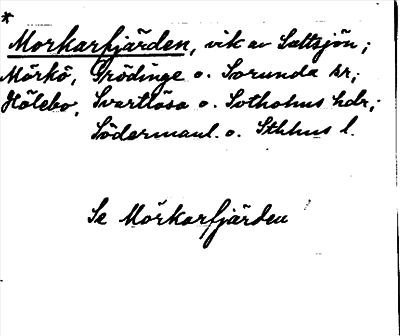 *
Morkarfjärden, vik av Saltsjön;
Mörkö, Grödinge o. Sorunda sr;
Hölebo, Svartlösa o. Sotholms hdr;
Södermanl. o. Sthlms l.
Se Mörkarfjärden